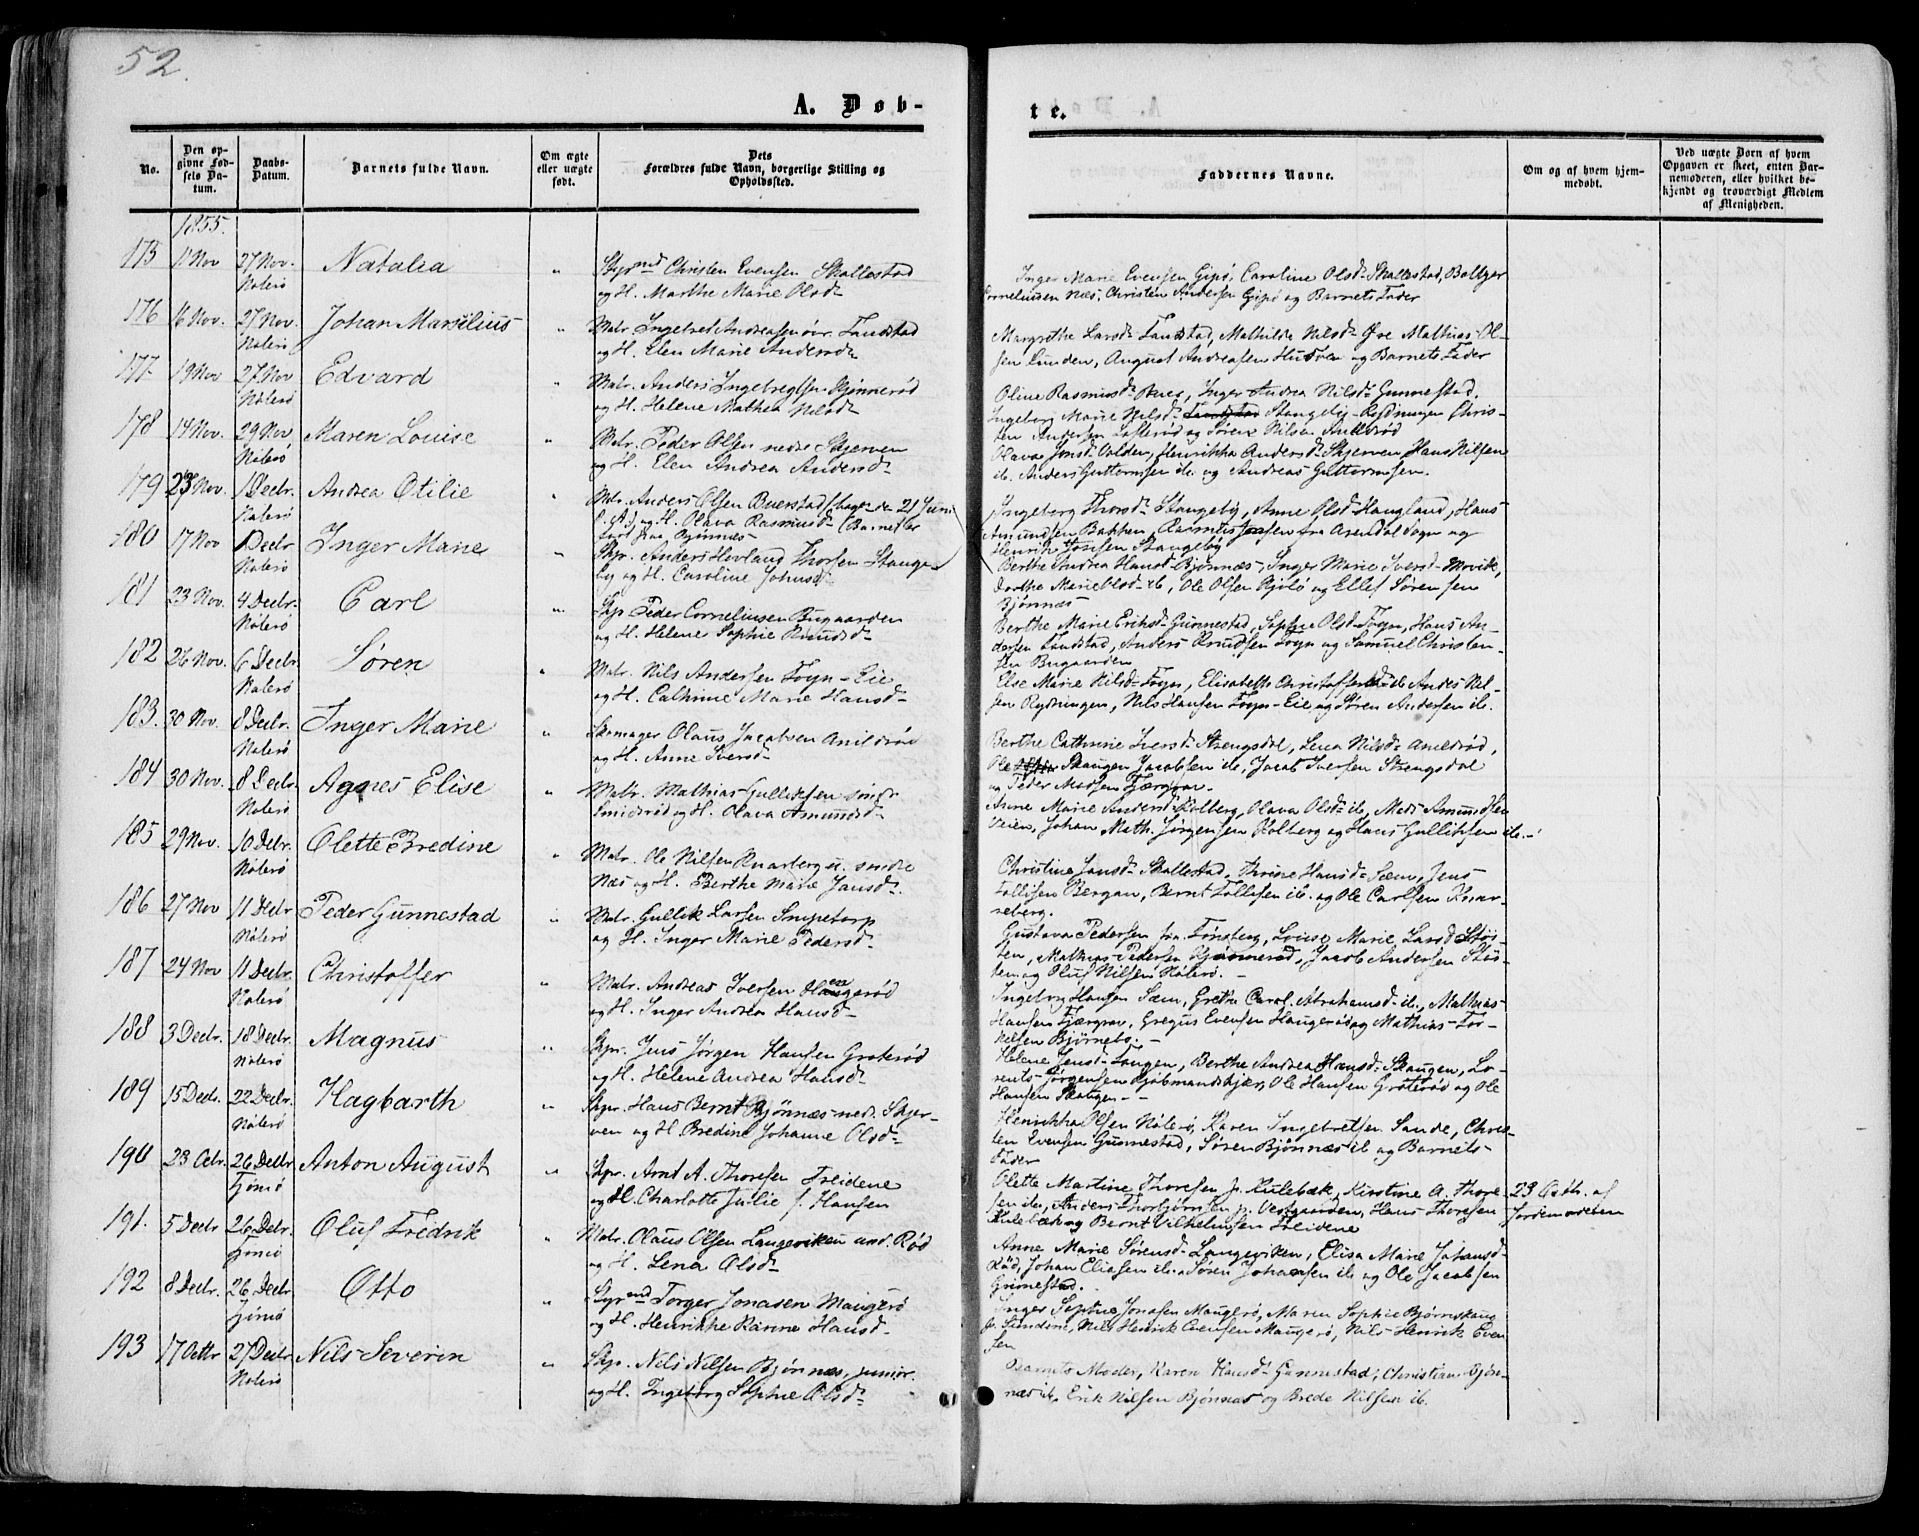 52.
A. Døb-
te.
No.
Den op-
givne Fød-
sels Da-
tum.
Daabs-
Datum.
Barnets fulde Navn.
Om ægte
eller uægte
født.
Dets
Forældres fulde Navn, borgerlige Stilling og
Opholdssted.
Faddernes Navne.
Om og af hvem hjem-
medøbt.
Ved uægte Børn af hvem
Opgaven er skeet, enten Bar-
nemoderen, eller hvilket be-
kjendt og troværdigt Medlem
af Menigheden.
1855.
175 11 Nov 27 Nov. Natalia " Styrmd Christen Evensen Skallestad
Nøterø og H. Marthe Marie Olsd
Inger Marie Evensen Gipø, Caroline Olsd Skallestad, Bottger
Corneliussen Næs, Christen Andersen Gipø og Barnets Fader
176 16 Nov. 27 Nov. Johan Marsilius " Matr. Ingebret Andreassen øvr. Fandstad
Nøterø og H. Elen Marie Andersd
Margrethe Larsd Fandstad, Mathilde Nilsd Øre Mathias Ol-
sen Lunden, August Andreasen Husvær og Barnets Fader
177 19 Nov 27 Nov Edvard " Matr. Anders Ingebregtsen Kjønnerød
Nøterø og H. Helene Mathea Nilsd
Oline Rasmusd Næs, Inger Andrea Nilsd Gunnestad.
Ingeborg Marie Nilsd Stangeby-Rydningen Chris-
ten Andersen Lofterød og Sørene Nilsen
178 14 Nov. 29 Nov Maren Louise " Matr. Peder Olsen nedre Skjerven
Nøterø og H. Elen Andrea Andersd
Olava Jensd Volden, Henrikka Andersd Skjerven Hans Nilsen
ib. Anders Guttormsen ib. og Andreas Guttormsen.
179 23 Nov. 1 Decbr. Andrea Otilie " Matr. Anders Olsen Buerstad 21 Juni
Nøterø og H. Olava Rasmusd (Barnet er
født paa Bjønnes
Ingeborg Thorsd Stangeby, Anne Olsd Haugland, Hans
Amundsen Bakken, Rasmus fra Arendal Sogn og
Henrik Josefsen Stangeby
180 17 Nov 1 Decbr Inger Marie " Skpr. Anders Hovland Thorsen Stange-
Nøterø by og H. Caroline Johnsd
Berthe Andrea Hansd Bjønnæs, Inger Marie Iversd Movik,
Dorthe Marie Olsd ib, Ole Olsen Kjølø og Ellef Sørensen
Bjønnæs
181 23 Nov. 4 Decbr. Carl " Skpr. Peder Corneliusen Bugaarden
Nøterø og H. Helene Sophie Knudsd
Berthe Marie Eriksd Gunnestad, Sophie Olsd Fogn, Hans An-
dersen Fandstad, Anders Knudsen Fogn og Samuel Christen-
sen Bugaarden
182 26 Nov. 6 Decbr. Søren " Matr. Nils Andersen Fogn-Eie
Nøterø og H. Cathrine Marie Hansd
Else Marie Nilsd Fogn, Elisabeth Christoffersd ib Andes Nil-
sen Rydningen, Nils Hansen Fogn-Eie og Søren Andersen ib.
183. 30 Nov. 8 Decbr. Inger Marie " Skomager Olaus Jacobsen Anildrød
Nøterø og H. Anne Iversd
Berthe Cathrine Iversd Strengsdal, Lena Nilsd Anildrød,
Ole Skaugen Jacobsen ib, Jacob Iversen Strengsdal
og Peder Madsen Fjærgrav.
184 30 Nov. 8 Decbr. Agnes Elise " Matr. Mathias Gulliksen søndr
Nøterø Smidsrød og H. Olava Amundsd
Anne Marie Andersd Kolberg, Olava Olsd ib, Mads Amundsen
Veien, Johan Math. Jørgensen Kolberg og Hans Gulliksen ib.
185 29 Nov. 10 Debr. Olette Bredine " Matr. Ole Nilsen Knarberg u. søndre
Nøterø Næs og H. Berthe Marie Jansd
Christine Jansd Skallestad, Thrine Hansd Sæm, Jens
Tollefsen Bergan, Bernt Tollefsen ib. og Ole Carlsen Knar-
reberg.
186 27 Nov 11 Decbr Peder Gunnestad " Matr. Gullik Larsen Snipetorp
Nøterø og H. Inger Marie Pedersd
Gustava Pedersen fra Tønsberg, Louise Marie Larsd Støi-
ten, Mathias Pedersen Kjønnerød, Jacob Andersen Støi-
ten og Oluf Nilsen Nøterø.
187 24 Nov 11 Decbr. Christoffer " Matr. Andreas Iversen Haugerød
Nøterø og H. Inger Andrea Hansd
Ingeborg Hansen Sæm, Grethe Carol. Abrahamsd ib, Mathias
Hansen Fjærgrav, Gregus Evensen Haugerød og Mathias Tor-
kelsen Bjørnebo.
188 3 Decbr. 18 Decbr. Magnus " Skpr. Jens Jørgen Hansen Grøterød
Nøterø og H. Helene Andrea Hansd
Helene Jensd Tangen, Berthe Andrea Hansd Skaugen, Lo-
rents Jørgensen Kjøbmandskjær, Ole Hansen Grøterød og Ole
Hansen Skaugen
189 15 Decbr. 22 Decbr. Hagbarth " Skpr. Hans Bernt Bjønnæs ned. Skjer-
Nøterø ven og H. Bredine Johanne Olsd
Henrikka Olsen Nøterø, Karen Ingebretsen Sande, Chris-
ten Evensen Gunnestad, Søren Bjønnæs ib og Barnets
Fader
190 23 Octr. 26 Decbr Anton August " Skpr. Arnt A. Thoresen Treidene
Tjømø og H. Charlotte Julie f. Hansen
Olette Martine Thoresen p. Kulebæk, Kirstine A. Thore-
sen ib, Anders Thorbjørnsen p. Vestgaarden, Hans Thoresen
Kulebæk og Bernt Vilhelmsen Treidene
23 Octbr. af
Jordemoderen
191. 5 Decbr 26 Debr. Oluf Fredrik " Matr. Olaus Olsen Langeviken und. Rød
Tjømø og H. Lena Olsd
Anne Marie Sørensd Langeviken, Elisa Marie Johansd
Rød, Johan Eliasen ib. Søren Johansen ib og Ole Jacobsen
Grimestad.
192 8 Decbr. 26 Decbr. Otto " Styrmd Torger Jonasen Maugerø
Tjømø og H. Henrikke Karine Hansd
Inger Sophie Jonasen Maugerø, Maren Sophie Bjørnskaug
p. Sundene, Nils Henrik Evensen Maugerø, Nils Henrik Even-
sen
193 17 Octbr 27 Decbr Nils Severin " Skpr. Nels Nilsen Bjønnæs, junior.
Nøterø og H. Ingeborg Sophie Olsd
Barnets Moder, Karen Hansd Gunnestad, Christian Bjøn-
næs ib, Erik Nilsen Bjønnæs og Brede Nilsen ib.